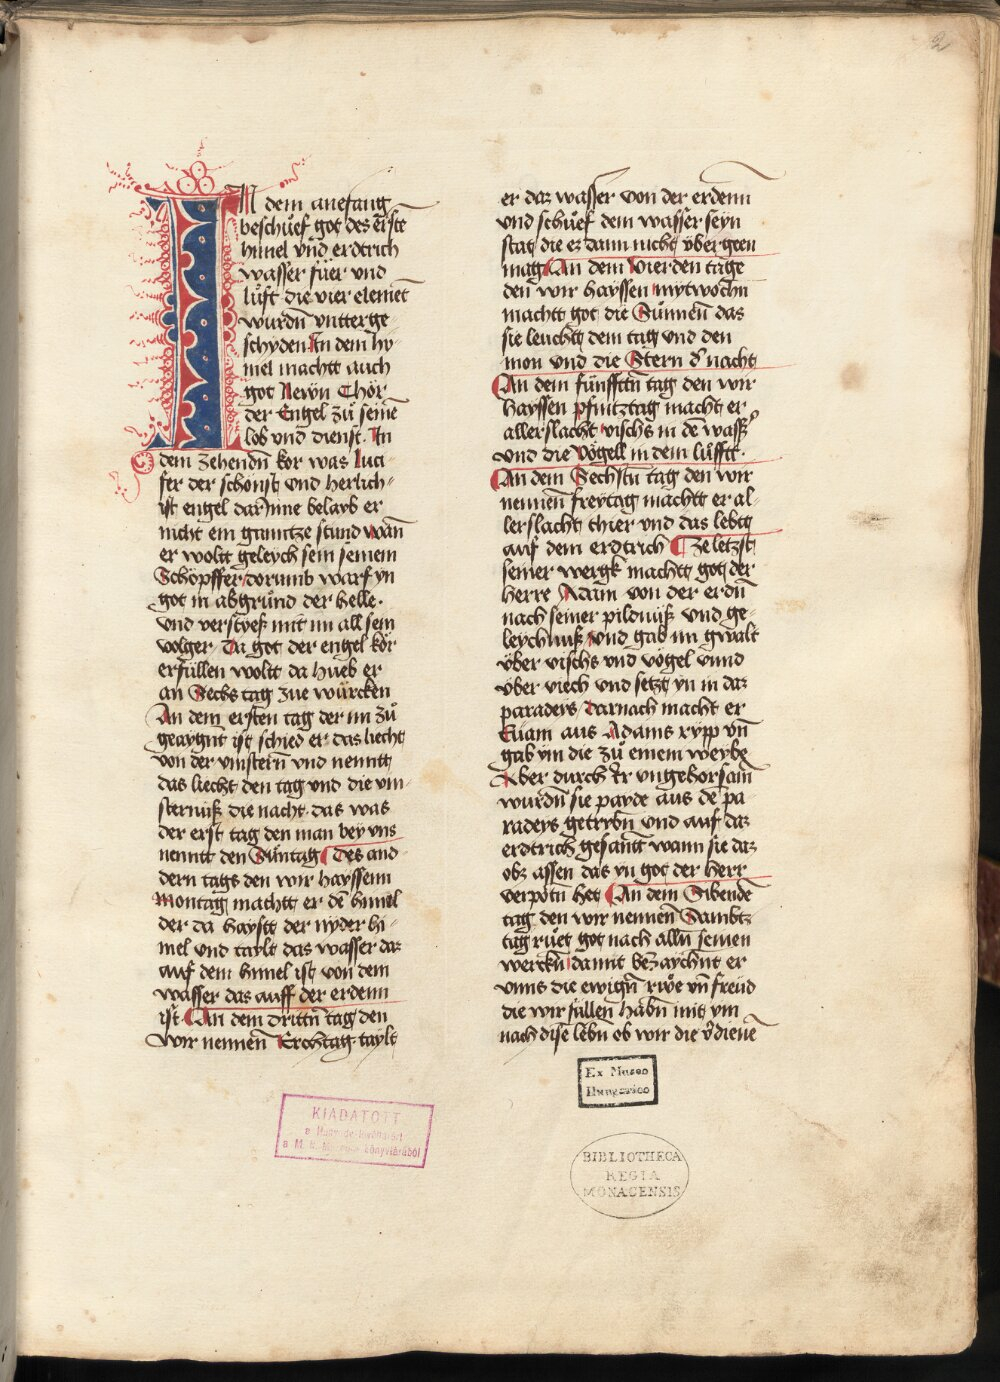 2
IN dem anefang
beschuͤef got des erste
himel vnd erdtrich
wasser fuͤer vnd
luͤft die vier element
wurdn̄ vntterge-
schyden In dem hy-
mel machtt auch
got Newn Chör
der Engel zuͤ seinē
lob vnd dienst. In
dem zehendn̄ kor was luci-
fer der schönst vnd herlich-
ist engel darInne belayb er
nicht ein ganntze stund wan̄
er wolt geleych sein seinem
Schöpffer dorumb warf yn
got in abgruͤnd der helle.
vnd verstyeß mit im all sein
volger. Da got der engel kör
erfüllen wolt da hueb er
an Sechs tag zue würcken
An dem ersten tag der im zuͤ
geaygnt ist schied er das liecht
von der vinstern̄ vnd nenntt
das liecht den tag vnd die vin-
sternüß die nacht. das was
der erst tag den man bey vns
nennt den Suͤntag Des and-
dern tags den wir hayssenn
Montag machtt er dē himel
der da haystt der nyder hi-
mel vnd taylt das wasser daz
auf dem himel ist von dem
wasser das auff der erdenn
ist. An dem drittn̄ tag den
wir nennen̄ Erchtag taylt
er daz wasser von der erdenn
vnd schuͤef dem wasser seyn
stat die er dann nicht vber geen
mag An dem vierden tage
den wir hayssen mytwochn
machtt got die Suͤnnen̄ das
sie leucht dem tag vnd den
mon vnd die Stern d' nacht
An dem fünfftn̄ tag den wir
hayssen pfintztag macht er
allerslacht vischs in dē wass'
vnd die Vögell in dem luͤfft.
An dem Sechstn̄ tag den wir
nennen freytag machtt er al-
lerslacht thier vnd das lebtt
auf dem erdtrich Ze letzst
seiner wergk machtt got der
herre Adam von der erdn̄
nach seiner pildnuß vnd ge-
leychnuß vnd gab im gwalt
vber vischs vnd vögel vnnd
vber viech vnd setzt yn in daz
paradeys Darnach macht er
Euam aus Adams rypp vn̄
gab ym die zuͤ einem weybe
Aber durch Ir vngehorsam̄
wurdn̄ sie payde aus dē pa
radeys getrybn̄ vnd auf daz
erdtrich gesant wann sie daz
obz assen das yn got der herr
verpotn̄ het An dem Sibendē
tag den wir nennen̄ Sambtz
tag ruͤet got nach alln̄ seinen
werckn̄ damit bezaychnt er
vnns die ewign̄ rwe vn̄ freud
die wir füllen habn̄ mit ym
nach dise lebn̄ ob wir die v'dienē
Ex Museo
Hungarico
KIADATOTT
a M. N. Múzeum könyvtárából
BIBLIOTHECA
REGIA
MONACENSIS